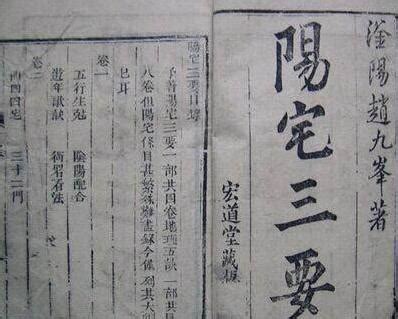 滏陽趙九峯著
陽宅三要
宏道堂藏板
陽宅三要目錄
予著陽宅三要一部共四卷地理五訣一部共
八卷但陽宅條目甚繁殊難盡錄今僅列其大
巳耳
卷一
五行生剋 陰陽配合
遊年歌訣 衙署看法
卷二
四宅 三十二門